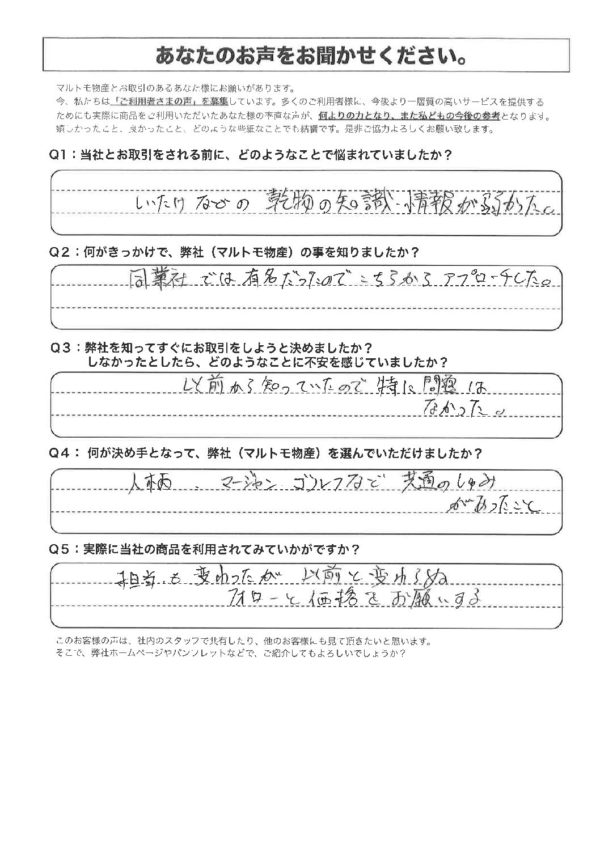 あなたのお声をお聞かせください。
マルトモ物産とお取引のあるあなた様にお願いがあります。
今、私たちは「ご利用者さまの声」を募集しています。多くのご利用者様に、今後より一層質の高いサービスを提供する
ためにも実際に商品をご利用いただいたあなた様の率直な声が、何よりの力となり、また私どもの今後の参考となります。
嬉しかったこと、良かったこと、どのような些細なことでも結構です。是非ご協力よろしくお願い致します。
Q1：当社とお取引をされる前に、どのようなことで悩まれていましたか？
いたけなどの乾物の知識・情報が弱かった。
Q2：何がきっかけで、弊社（マルトモ物産）の事を知りましたか？
同業社では有名だったのでこちらからアプローチした。
Q3：弊社を知ってすぐにお取引をしようと決めましたか？
しなかったとしたら、どのようなことに不安を感じていましたか？
以前から知っていたので特に問題は
なかった。
Q4： 何が決め手となって、弊社（マルトモ物産）を選んでいただけましたか？
人柄、マージャン ゴルフなど 共通のしゅみ
があったこと
Q5：実際に当社の商品を利用されてみていかがですか？
担当も変わったが以前と変わらぬ
フォローと価格をお願いする
このお客様の声は、社内のスタッフで共有したり、他のお客様にも見て頂きたいと思います。
そこで、弊社ホームページやパンフレットなどで、ご紹介してもよろしいでしょうか？